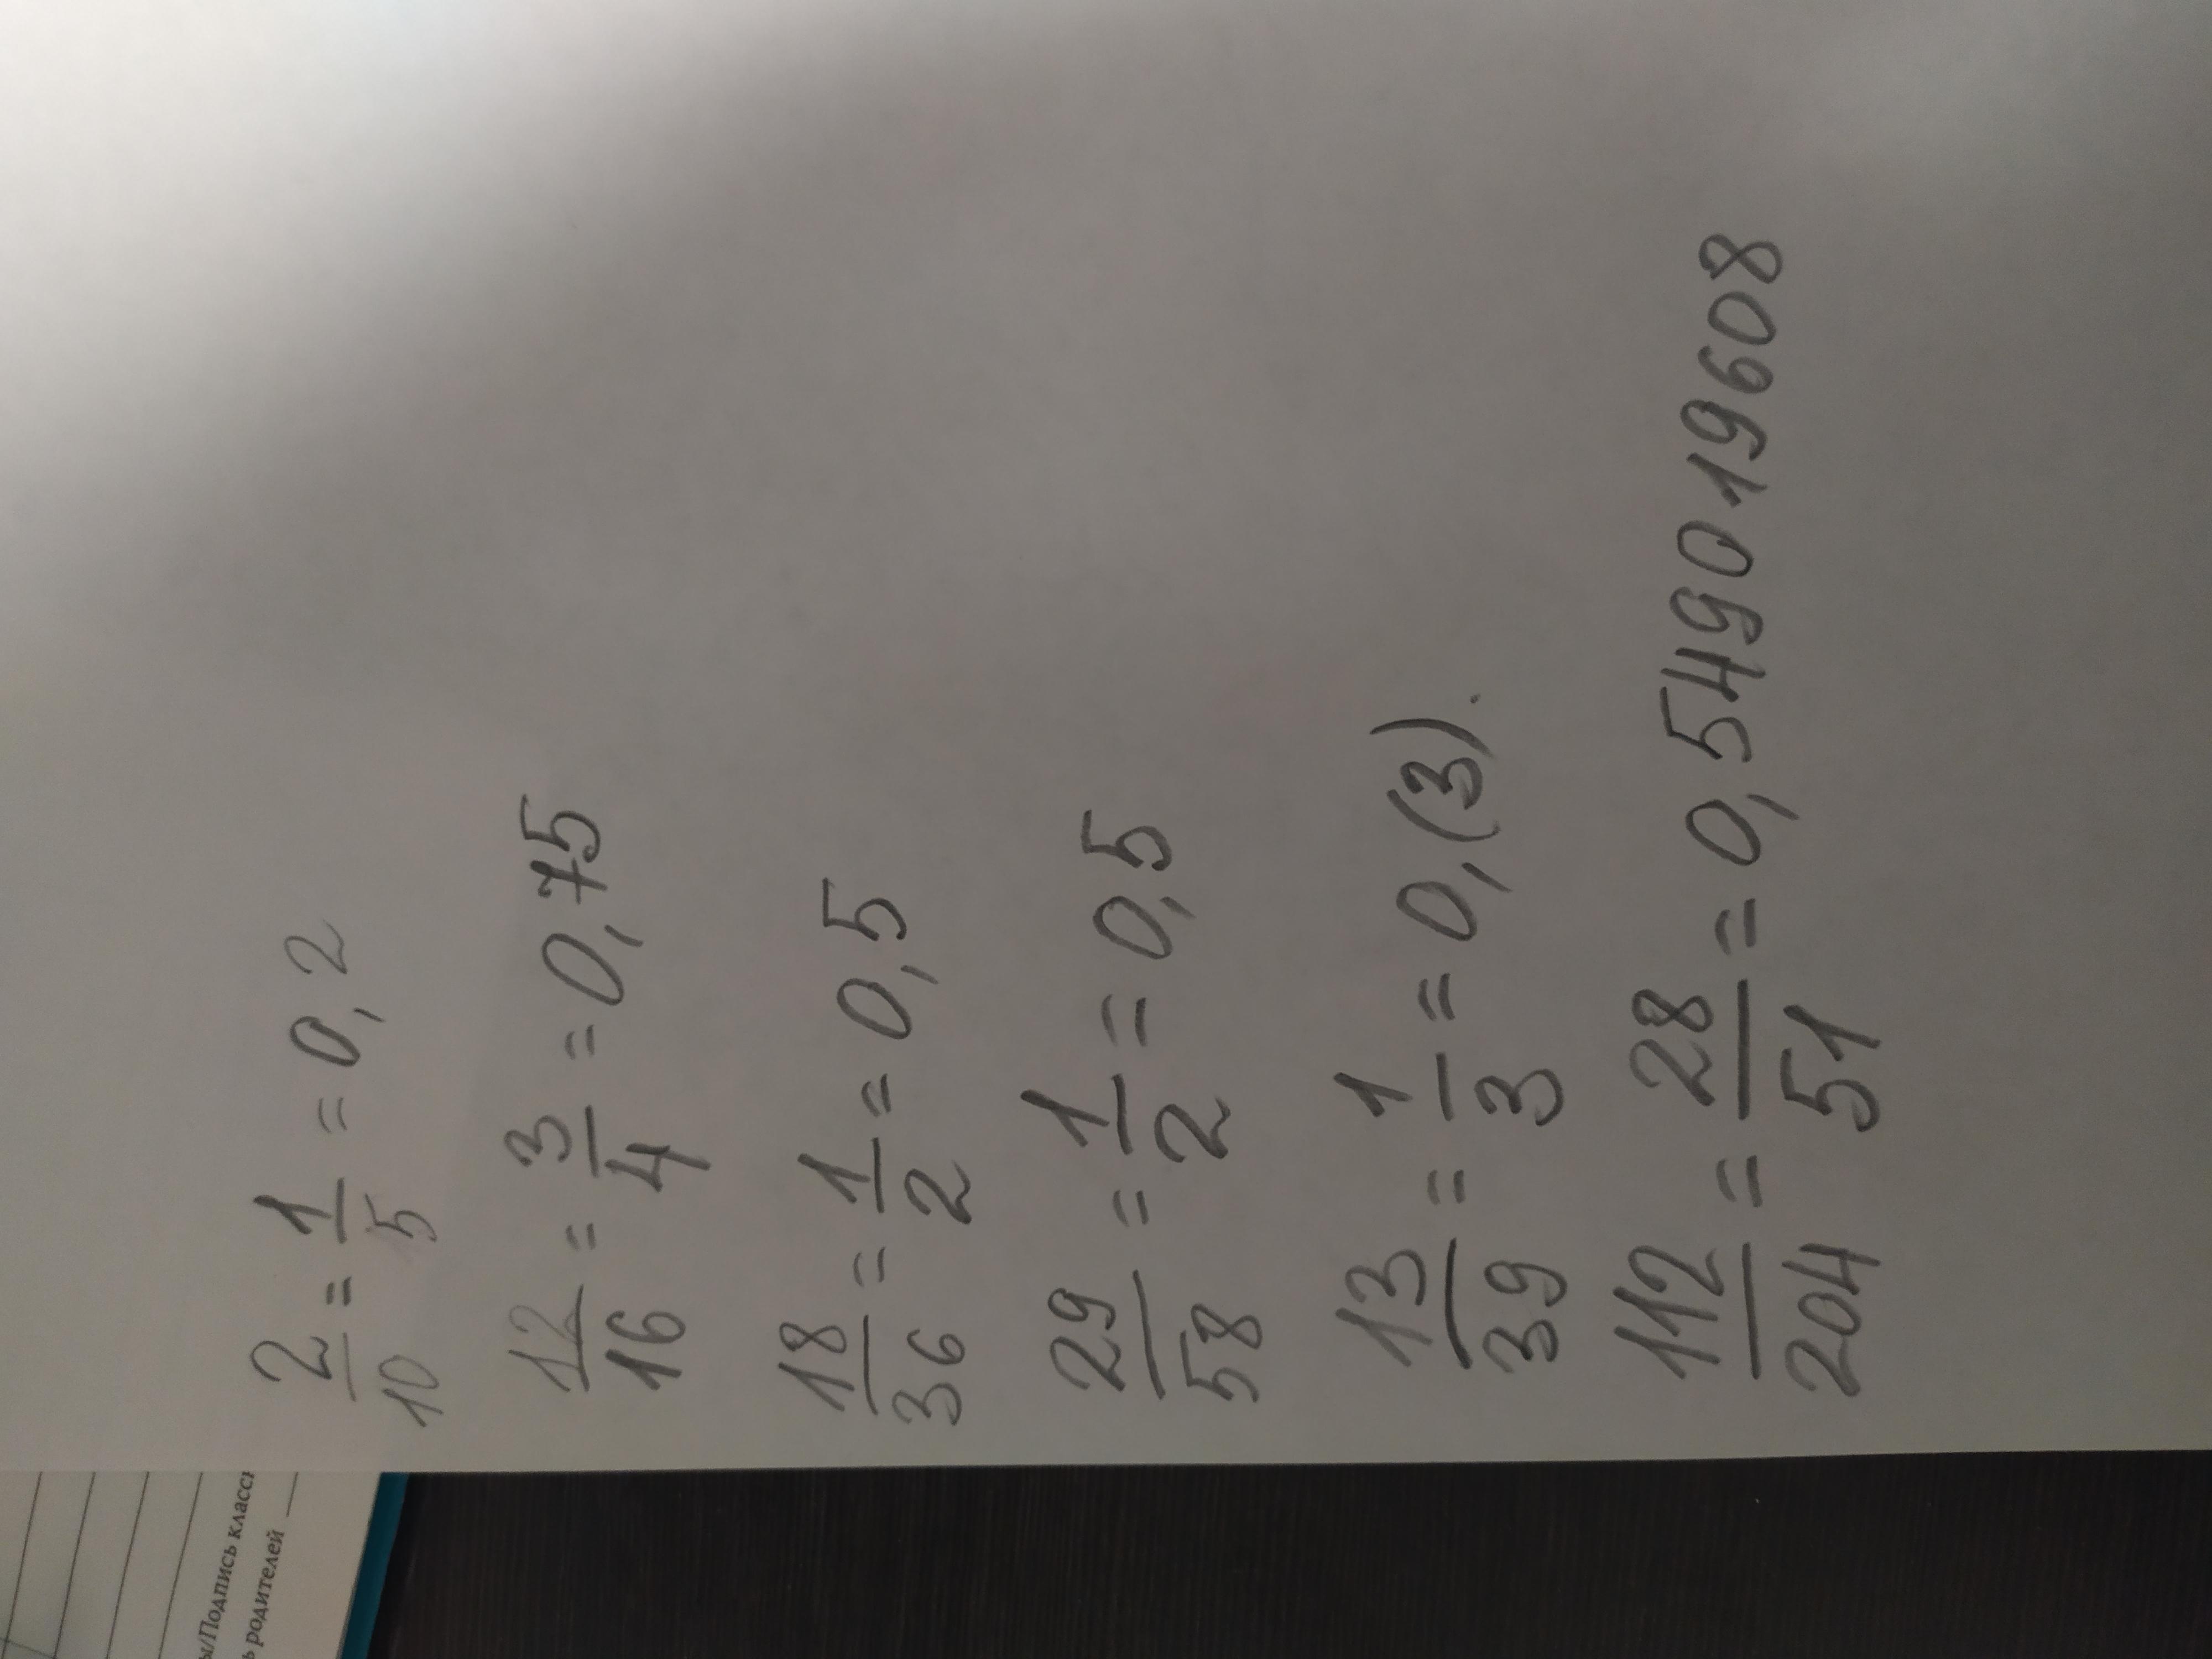 2/10 = 1/5 = 0,2
12/16 = 3/4 = 0,75
18/36 = 1/2 = 0,5
29/58 = 1/2 = 0,5
13/39 = 1/3 = 0,(3).
112/204 = 28/51 = 0,549019608
ы/Подпись класс
ь родителей